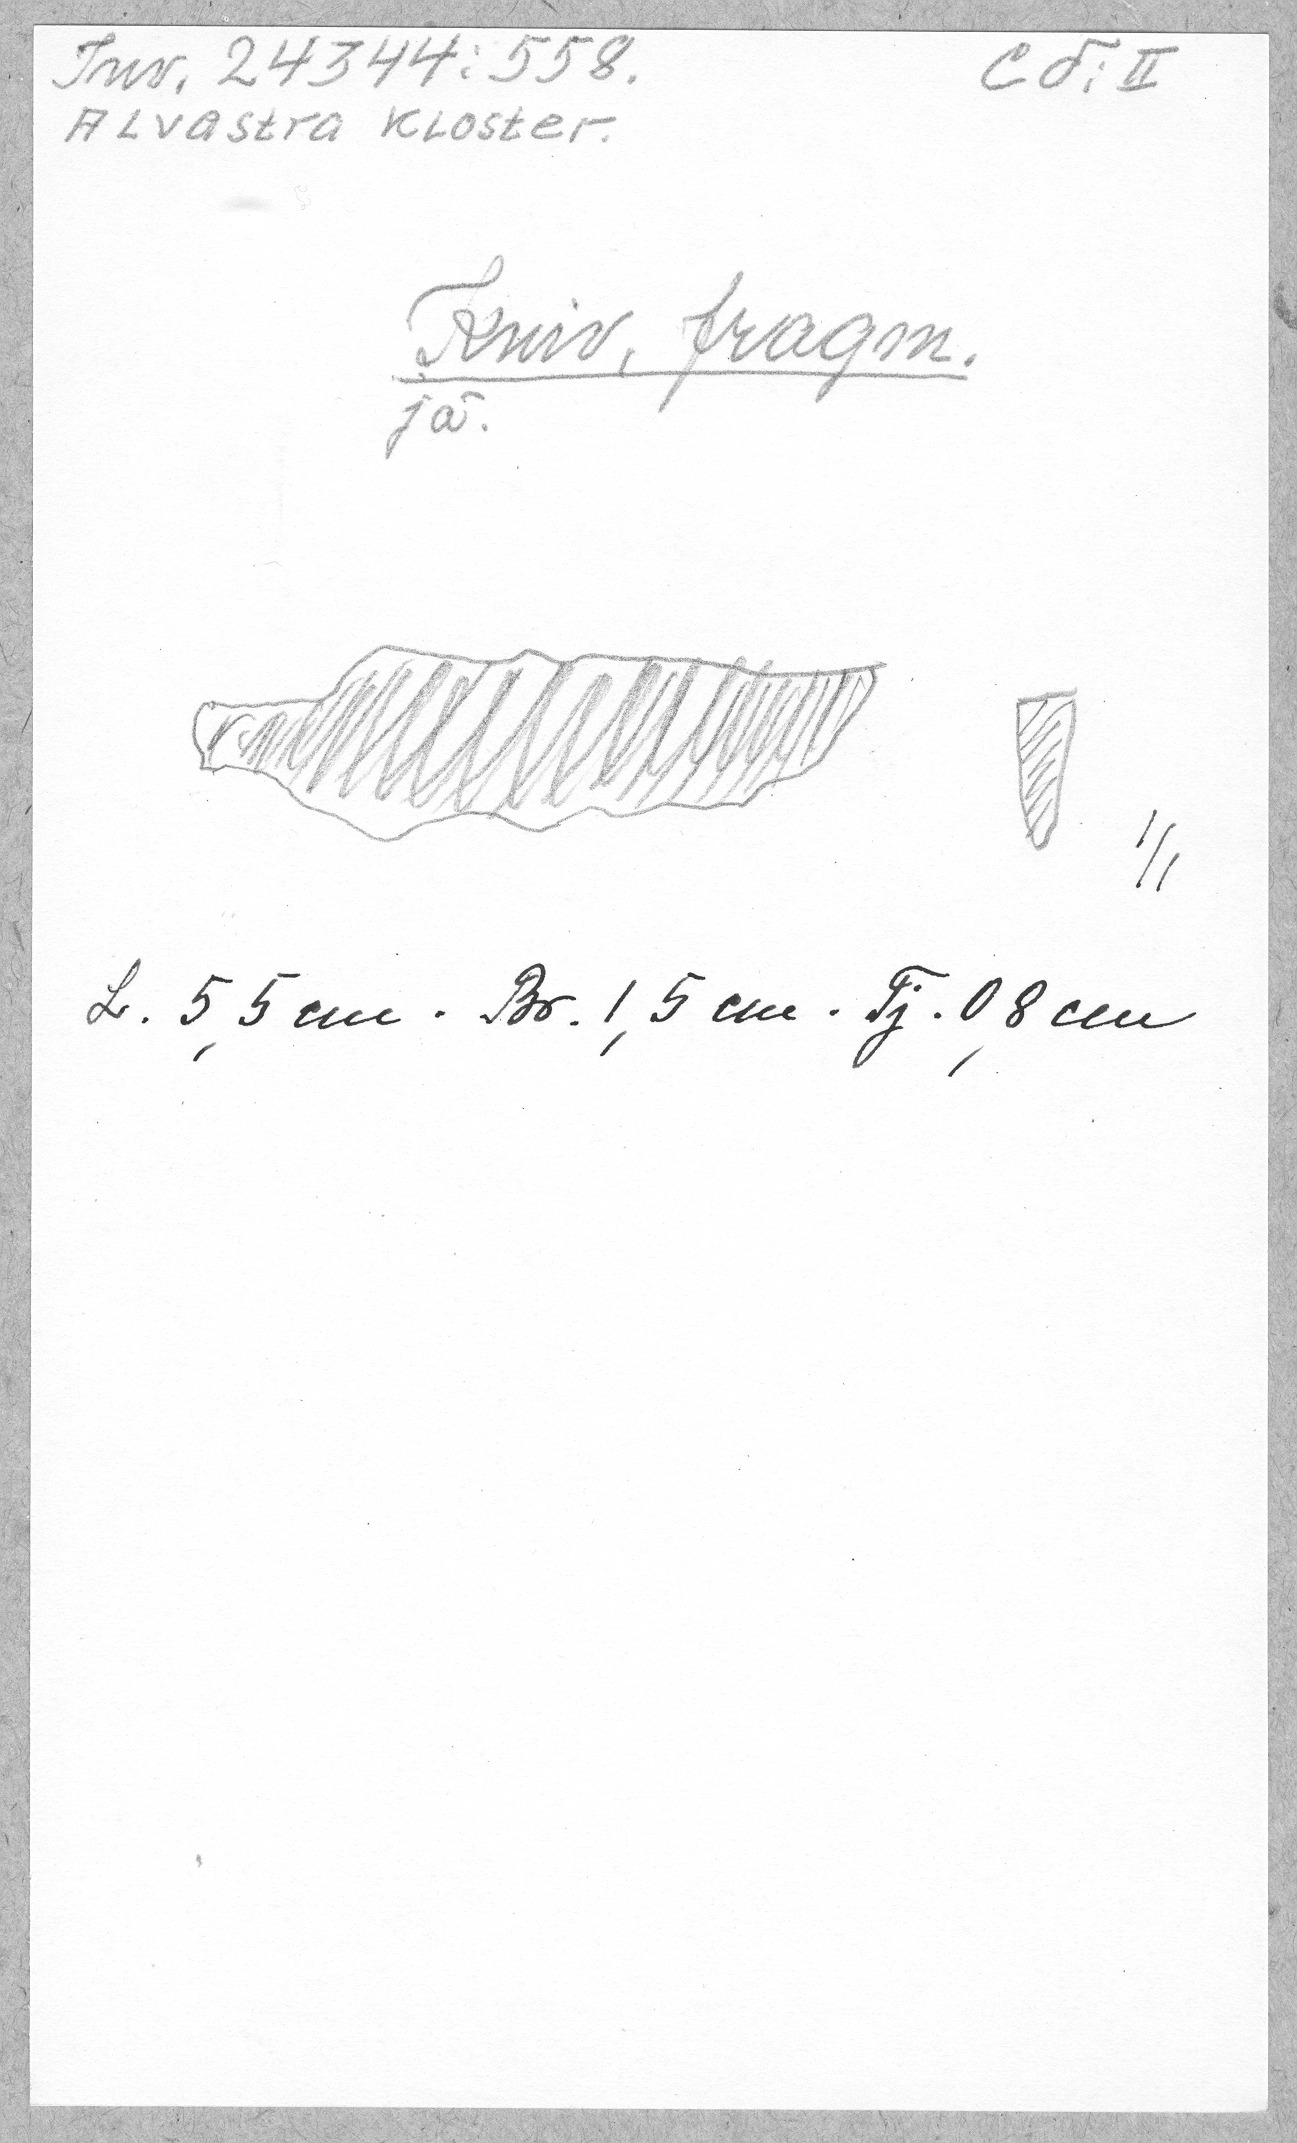 Inv. 24344:558.
C ö: II
Alvastra Kloster.
Kniv, fragm.
jä.
1/1
L. 5,5 cm. Br. 1,5 cm. Tj. 0,8 cm